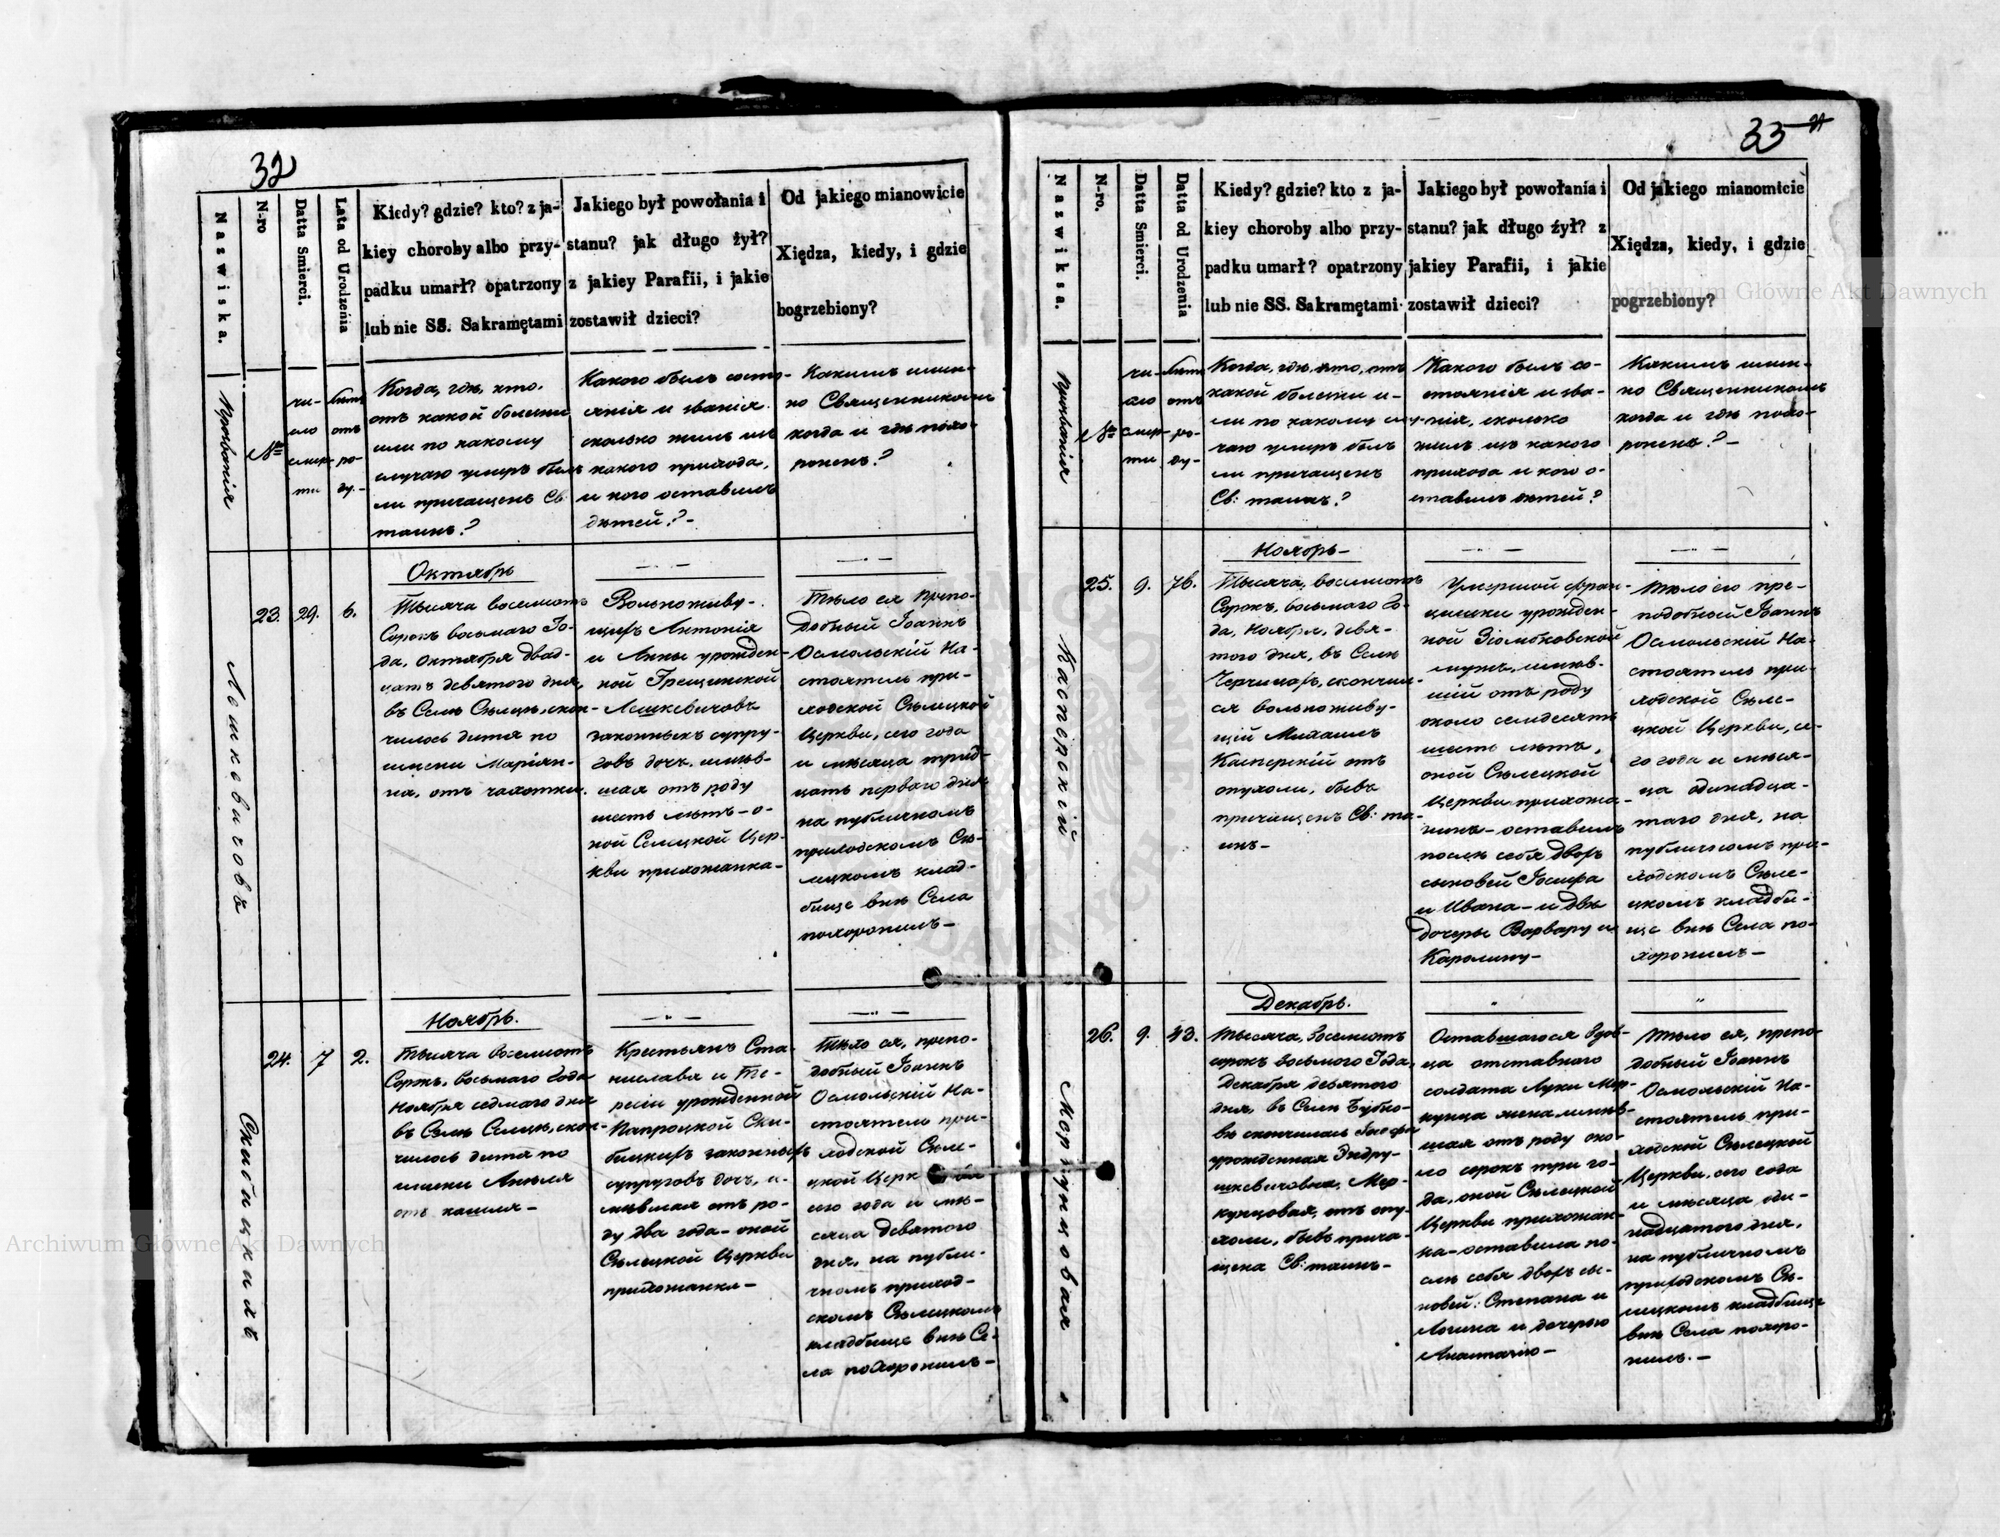 32
Nazwiska.
N-ro
Datta Smierci.
Lata od Urodzenia
Kiedy? gdzie? kto? z ja-
kiey choroby albo przy-
padku umarł? opatrzony
lub nie SS. Sakramętami
Jakiego był powołania i
stanu? jak długo żył?
z jakiey Parafii, i jakie
zostawił dzieci?
Od jakiego mianowicie
Xiędza, kiedy, i gdzie
bogrzebiony?
Прозванія
№
чи-
сло
смер-
ти
Лѣта
отъ
ро-
ду.
Когда, гдѣ, кто,
отъ какой болезни
или по какому
случаю умеръ былъ
ли причащенъ Св.
таинъ?
Какого былъ состо-
янія и званія
сколько жилъ изъ
какого прихода,
и кого оставилъ
дѣтей?
Какимъ имян-
но Священникомъ
когда и гдѣ похо-
роненъ?
Лешкевичовъ
23.
29.
6.
Октябрь
Тысяча восемсотъ
Сорокъ восьмаго Го-
да, Октября двад-
цать девятого дня,
въ Селѣ Сѣльцѣ, скон-
чилось дитя по
имени Маріян-
на, отъ чахотки.
Вольноживу-
щихъ Антонія
и Анны урожден-
ной Грещинской
Лешкевичовъ
законныхъ супру-
говъ дочь, имѣв-
шая отъ роду
шесть лѣтъ - о-
ной Селецкой Цер-
кви прихожанка -
Тѣло ея Препо-
добный Іоаннъ
Осмольскій На-
стоятель при-
ходской Сѣлецкой
Церкви, сего года
и мѣсяца трид-
цать первого дня
на публичномъ
приходскомъ Сѣ-
лецкомъ клад-
бище внѣ Села
похоронилъ -
Скибицкихъ
24.
7
2.
Ноябрь.
Тысяча восемсотъ
Сорокъ, восьмаго Года
Ноября седмаго дня
въ Селѣ Сельцѣ, скон-
чилось дитя по
имени Анѣля
отъ кашля -
Крестьянъ Ста-
нислава и Те-
ресіи урожденной
Папроцкой Ски-
бицкихъ законныхъ
супруговъ дочь, и-
мѣвшая отъ ро-
ду два года - оной
Сѣлецкой Церкви
прихожанка -
Тѣло ея, препо-
добный Іоаннъ
Осмольскій На-
стоятель при-
ходской Сѣле-
цкой Церкви
сего года и мѣ-
сяца девятого
дня, на публи-
чномъ приход-
скомъ Сѣлецкомъ
кладбище внѣ Се-
ла похоронилъ -
33
Nazwiksa.
N-ro.
Datta Smierci.
Data od Urodzenia
Kiedy? gdzie? kto z ja-
kiey choroby albo przy-
padku umarł? opatrzony
lub nie SS. Sakramętami.
Jakiego był powołania i
stanu? jak długo żył? z
jakiey Parafii, i jakie
zostawił dzieci?
Od jakiego mianomicie
Xiędza, kiedy, i gdzie
pogrzebiony?
Прозванія
№
чи-
сло
смер-
ти
Лѣта
отъ
ро-
ду-
Когда, гдѣ, кто, отъ
какой болезни и-
ли по какому слу-
чаю умеръ былъ
ли причащенъ
Св: таинъ?
Какого былъ со-
стоянія и зва-
нія, сколько
жилъ изъ какого
прихода и кого о-
ставилъ дѣтей?
Какимъ имян-
но Священникомъ
когда и гдѣ похо-
роненъ? -
Касперскій
25.
9.
76.
Ноябрь -
Тысяча, восемсотъ
Сорокъ, восьмого Го-
да, Ноября, девя-
того дня, въ Селѣ
скончил-
ся вольноживу-
щій Михаилъ
Касперскій отъ
опухоли, бывъ
причащенъ Св: та-
инъ -
Умершой Фран-
цишки урожден-
ной
мужъ, имѣв-
шій отъ роду
около семдесятъ
шесть лѣтъ,
оной Сѣлецкой
Церкви прихожа-
нинъ - оставилъ
послѣ себя двохъ
сыновей Іосифа
и Ивана - и двѣ
дочеры Варвару и
Каролину -
Тѣло его пре-
подобный Іоаннъ
Осмольскій На-
стоятель при-
ходской Сѣле-
цкой Церкви, се-
го года и мѣся-
ца одинадца-
таго дня, на
публичномъ при-
ходскомъ Сѣле-
цкомъ кладби-
ще внѣ Села по-
хоронилъ -
26.
9.
43.
Декабрь.
Тысяча, восемсотъ
сорокъ восьмого Года,
Декабря девятого
дня, въ Селѣ
скончилась
урожденная Эндру-
шкевичовна, Мор-
кунцовая, отъ опу-
холи, бывъ прича-
щена Св: таинъ -
Оставшагося вдов-
ца отставного
солдата Луки Мор-
кунца жена имѣв-
шая отъ роду око-
ло сорокъ три го-
да, оной Сѣлецкой
Церкви прихожан-
ка - оставила по-
слѣ себя двохъ сы-
новей: Степана и
и дочерью
Анастасію -
Тѣло ея, препо-
добный Іоаннъ
Осмольскій На-
стоятель при-
ходской Сѣлецкой
Церкви, сего года
и мѣсяца оди-
надцатого дня,
на публичномъ
приходскомъ Сѣ-
лецкомъ кладбище
внѣ Села похоро-
нилъ. -
Archiwum Główne Akt Dawnych
Archiwum Główne Akt Dawnych